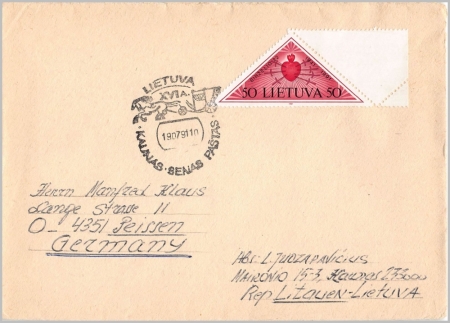 LIETUVA
XVI A.
50 LIETUVA 50
19079110
· KAUNAS · SENAS PAŠTAS ·
Herrn Manfred Klaus
Lange Strasse 11
O-4351 Peissen
Germany
Abs: L. JUOZAPAVIČIUS
MAIRONIO 15-3, Kaunas 233000
Rep Litauen-LIETUVA